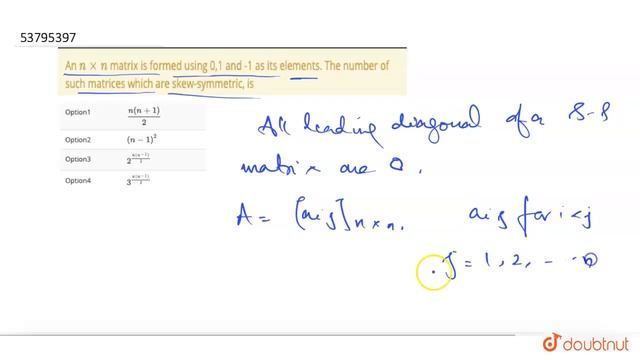 53795397
An n × n matrix is formed using 0,1 and -1 as its elements. The number of
such matrices which are skew-symmetric, is
Option1 n(n+1)/2
Option2 (n − 1)^2
Option3 2^(n(n−1)/2)
Option4 3^(n(n−1)/2)
All leading diagonal of a S-S
matrix are 0.
A = [aij]n×n. aij for i<j
j = 1, 2, - - n
doubtnut